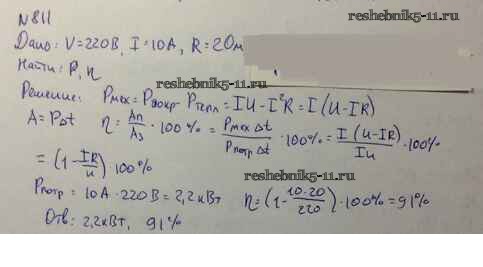 N 811
reshebnik5-11.ru
Дано: V=220В, I=10A, R=2Ом
Найти: P, η
reshebnik5-11.ru
Решение: Pмех = Pпотр - Pтепл = IU - I²R = I(U - IR)
A = PΔt η = Aп/Aз · 100% = PмехΔt/PпотрΔt · 100% = I(U-IR)/IU · 100%
= (1 - IR/U) · 100%
reshebnik5-11.ru
Pпотр = 10A · 220В = 2,2кВт η = (1 - 10·20/220) · 100% = 91%
Отв: 2,2кВт, 91%